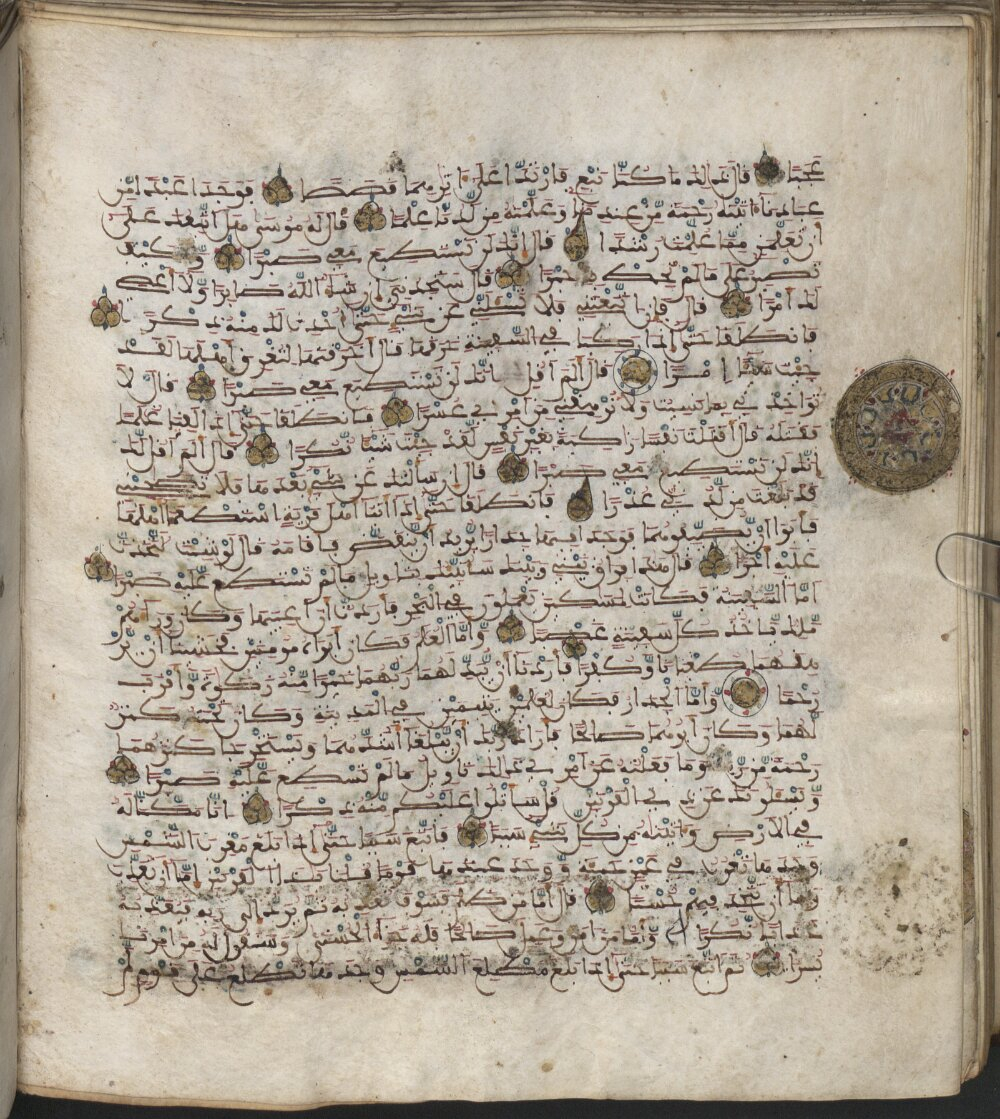 عجبا قال ذلك ما كنا نبغ فارتدا على اثرهما قصصا فوجدا عبدا من
عبادنا اتينه رحمة من عندنا وعلمنه من لدنا علما قال له موسى هل اتبعك على
ان تعلمن مما علمت رشدا قال انك لن تستطيع معي صبرا وكيف
تصبر على ما لم تحط به خبرا قال ستجدني ان شاء الله صابرا ولا اعصي
لك امرا قال فان اتبعتني فلا تسئلني عن شيء حتى احدث لك منه ذكرا
فانطلقا حتى اذا ركبا في السفينة خرقها قال اخرقتها لتغرق اهلها لقد
جئت شيئا امرا قال الم اقل انك لن تستطيع معي صبرا قال لا
تؤاخذني بما نسيت ولا ترهقني من امري عسرا فانطلقا حتى اذا لقيا غلما
فقتله قال اقتلت نفسا زاكية بغير نفس لقد جئت شيئا نكرا قال الم اقل لك
انك لن تستطيع معي صبرا قال ان سالتك عن شيء بعدها فلا تصحبني
قد بلغت من لدني عذرا فانطلقا حتى اذا اتيا اهل قرية استطعما اهلها
فابوا ان يضيفوهما فوجدا فيها جدارا يريد ان ينقض فاقامه قال لو شئت لتخذت
عليه اجرا قال هذا فراق بيني وبينك سانبئك بتاويل ما لم تستطع عليه صبرا
اما السفينة فكانت لمسكين يعملون في البحر فاردت ان اعيبها وكان وراءهم
ملك ياخذ كل سفينة غصبا واما الغلم فكان ابواه مومنين فخشينا ان ير
هقهما طغينا وكفرا فاردنا ان يبدلهما ربهما خيرا منه زكوة واقرب
رحما واما الجدار فكان لغلمين يتيمين في المدينة وكان تحته كنز
لهما وكان ابوهما صالحا فاراد ربك ان يبلغا اشدهما ويستخرجا كنزهما
رحمة من ربك وما فعلته عن امري ذلك تاويل ما لم تسطع عليه صبرا
ويسئلونك عن ذي القرنين قل ساتلوا عليكم منه ذكرا انا مكنا له
في الارض واتينه من كل شيء سببا فاتبع سببا حتى اذا بلغ مغرب الشمس
وجدها تغرب في عين حمئة ووجد عندها قوما قلنا يذا القرنين اما ان تعذب
واما ان تتخذ فيهم حسنا قال اما من ظلم فسوف نعذبه ثم يرد الى ربه فيعذبه
عذابا نكرا واما من امن وعمل صالحا فله جزاء الحسنى وسنقول له من امرنا
يسرا ثم اتبع سببا حتى اذا بلغ مطلع الشمس وجدها تطلع على قوم لم